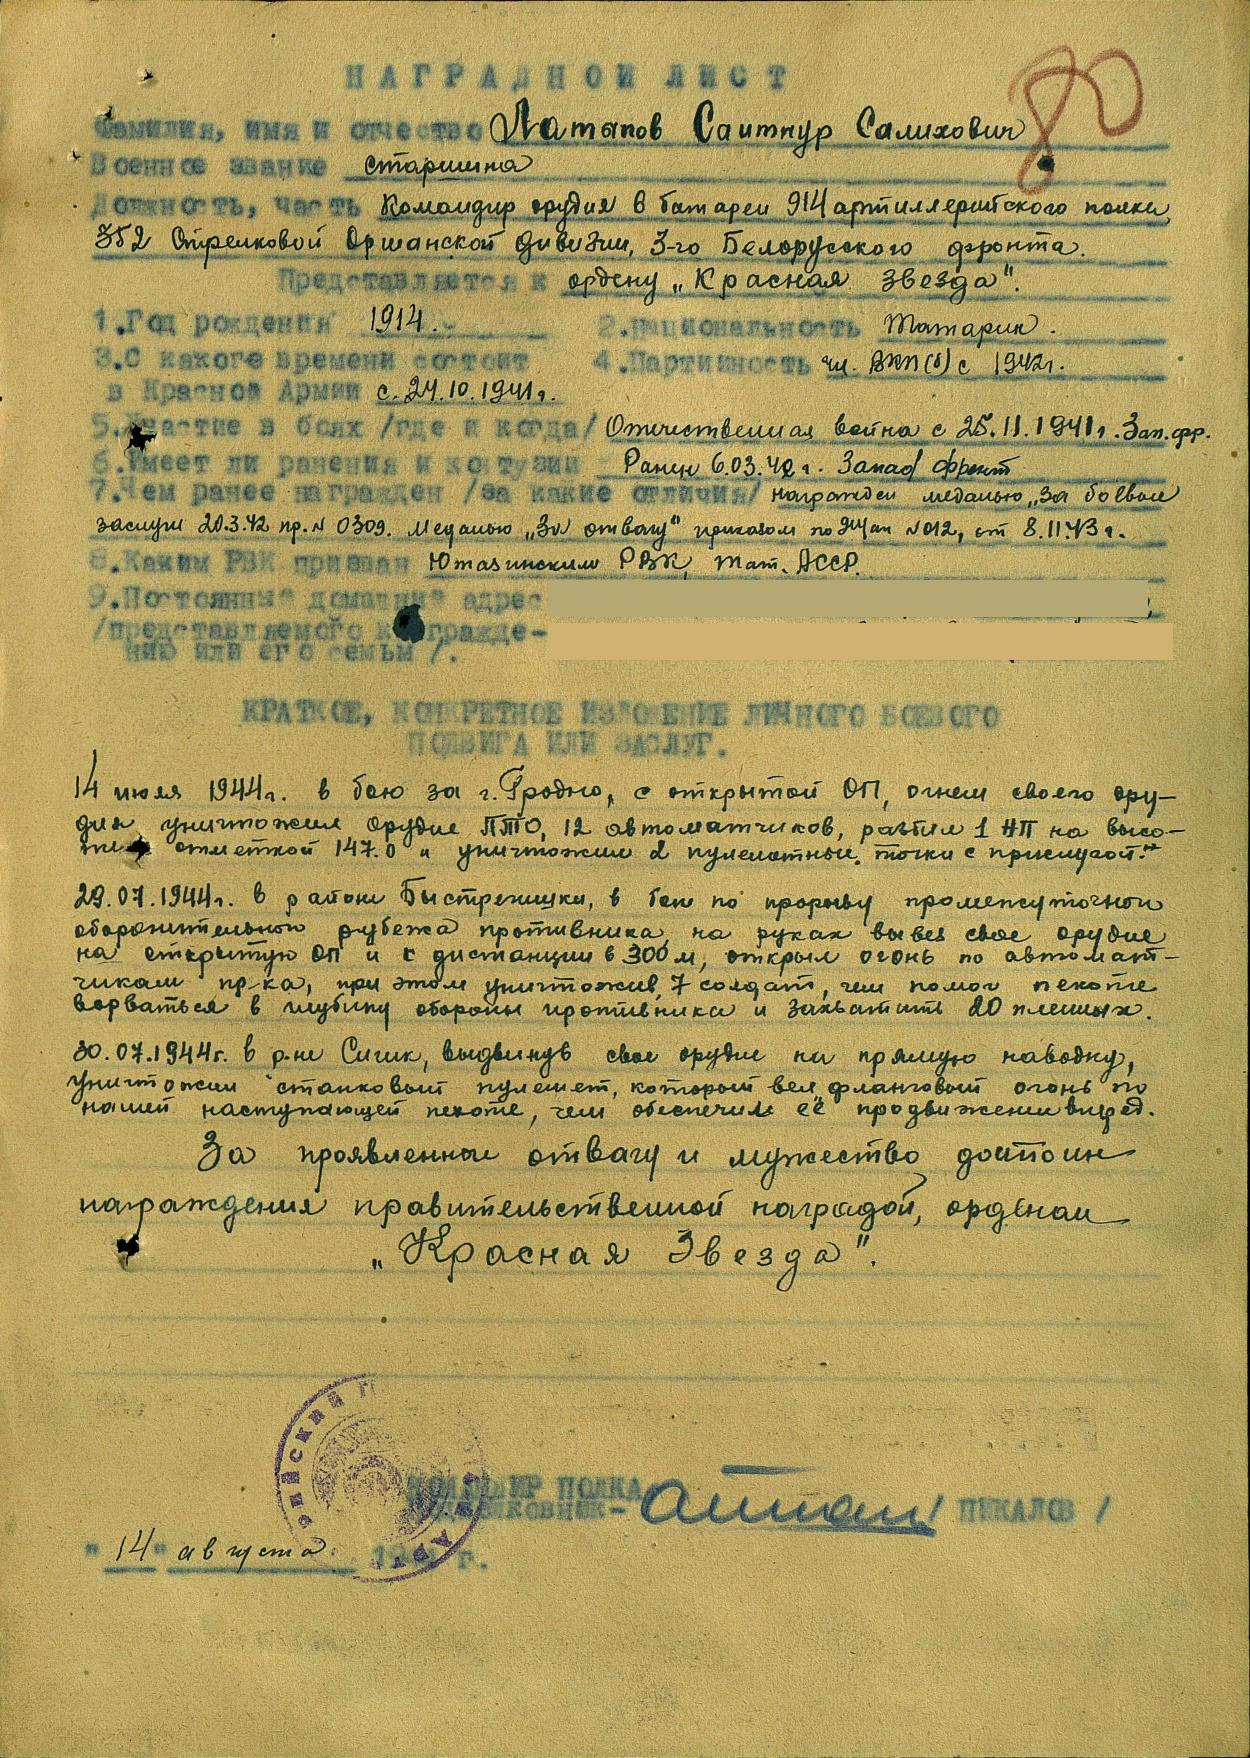 80
НАГРАДНОЙ ЛИСТ
Фамилия, имя и отчество Латыпов Саитнур Салихович
Военное звание старшина
Должность, часть Командир орудия 6 батареи 914 артиллерийского полка
352 Стрелковой Оршанской дивизии, 3-го Белорусского фронта.
Представляется к ордену „Красная звезда".
1.Год рождения 1914. 2.Национальность Татарин.
3.С какого времени состоит 4.Партийность чл. ВКП(б) с 1942г.
в Красной Армии с 24.10.1941г.
5.Участие в боях /где и когда/ Отечественная война с 25.11.1941г. Зап.фр.
6.Имеет ли ранения и контузии Ранен 6.03.42г. Запад фронт
7.Чем ранее награжден /за какие отличия/ награжден медалью „За боевые
заслуги 20.3.42 пр.№ 0309. Медалью „За отвагу" приказом по 914 ап №012, от 8.11.43г.
8.Каким РВК призван Ютазинским РВК, Тат. АССР.
9.Постоянный домашний адрес
/представляемого к награжде-
нию или его семьи/.
КРАТКОЕ, КОНКРЕТНОЕ ИЗЛОЖЕНИЕ ЛИЧНОГО БОЕВОГО
ПОДВИГА ИЛИ ЗАСЛУГ.
14 июля 1944г. в бою за г.Гродно, с открытой ОП, огнем своего ору-
дия уничтожил орудие ПТО, 12 автоматчиков, разбил 1 НП на высо-
те отметкой 147.0 и уничтожил 2 пулеметные точки с прислугой.
29.07.1944г. в районе в бою по прорыву промежуточной
оборонительной рубежа противника, на руках вывез свое орудие
на открытую ОП и с дистанции в 300м, открыл огонь по автомат-
чикам пр-ка, при этом уничтожив 7 солдат, чем помог пехоте
ворваться в глубину обороны противника и захватить 20 пленных.
30.07.1944г. в р-не выдвинув свое орудие на прямую наводку,
уничтожил станковый пулемет, который вел фланговый огонь по
нашей наступающей пехоте, чем обеспечил её продвижение вперед.
За проявленные отвагу и мужество достоин
награждения правительственной наградой, орденом
„Красная Звезда".
КОМАНДИР ПОЛКА
ПОДПОЛКОВНИК- / ПИКАЛОВ /
"14" августа 194 г.